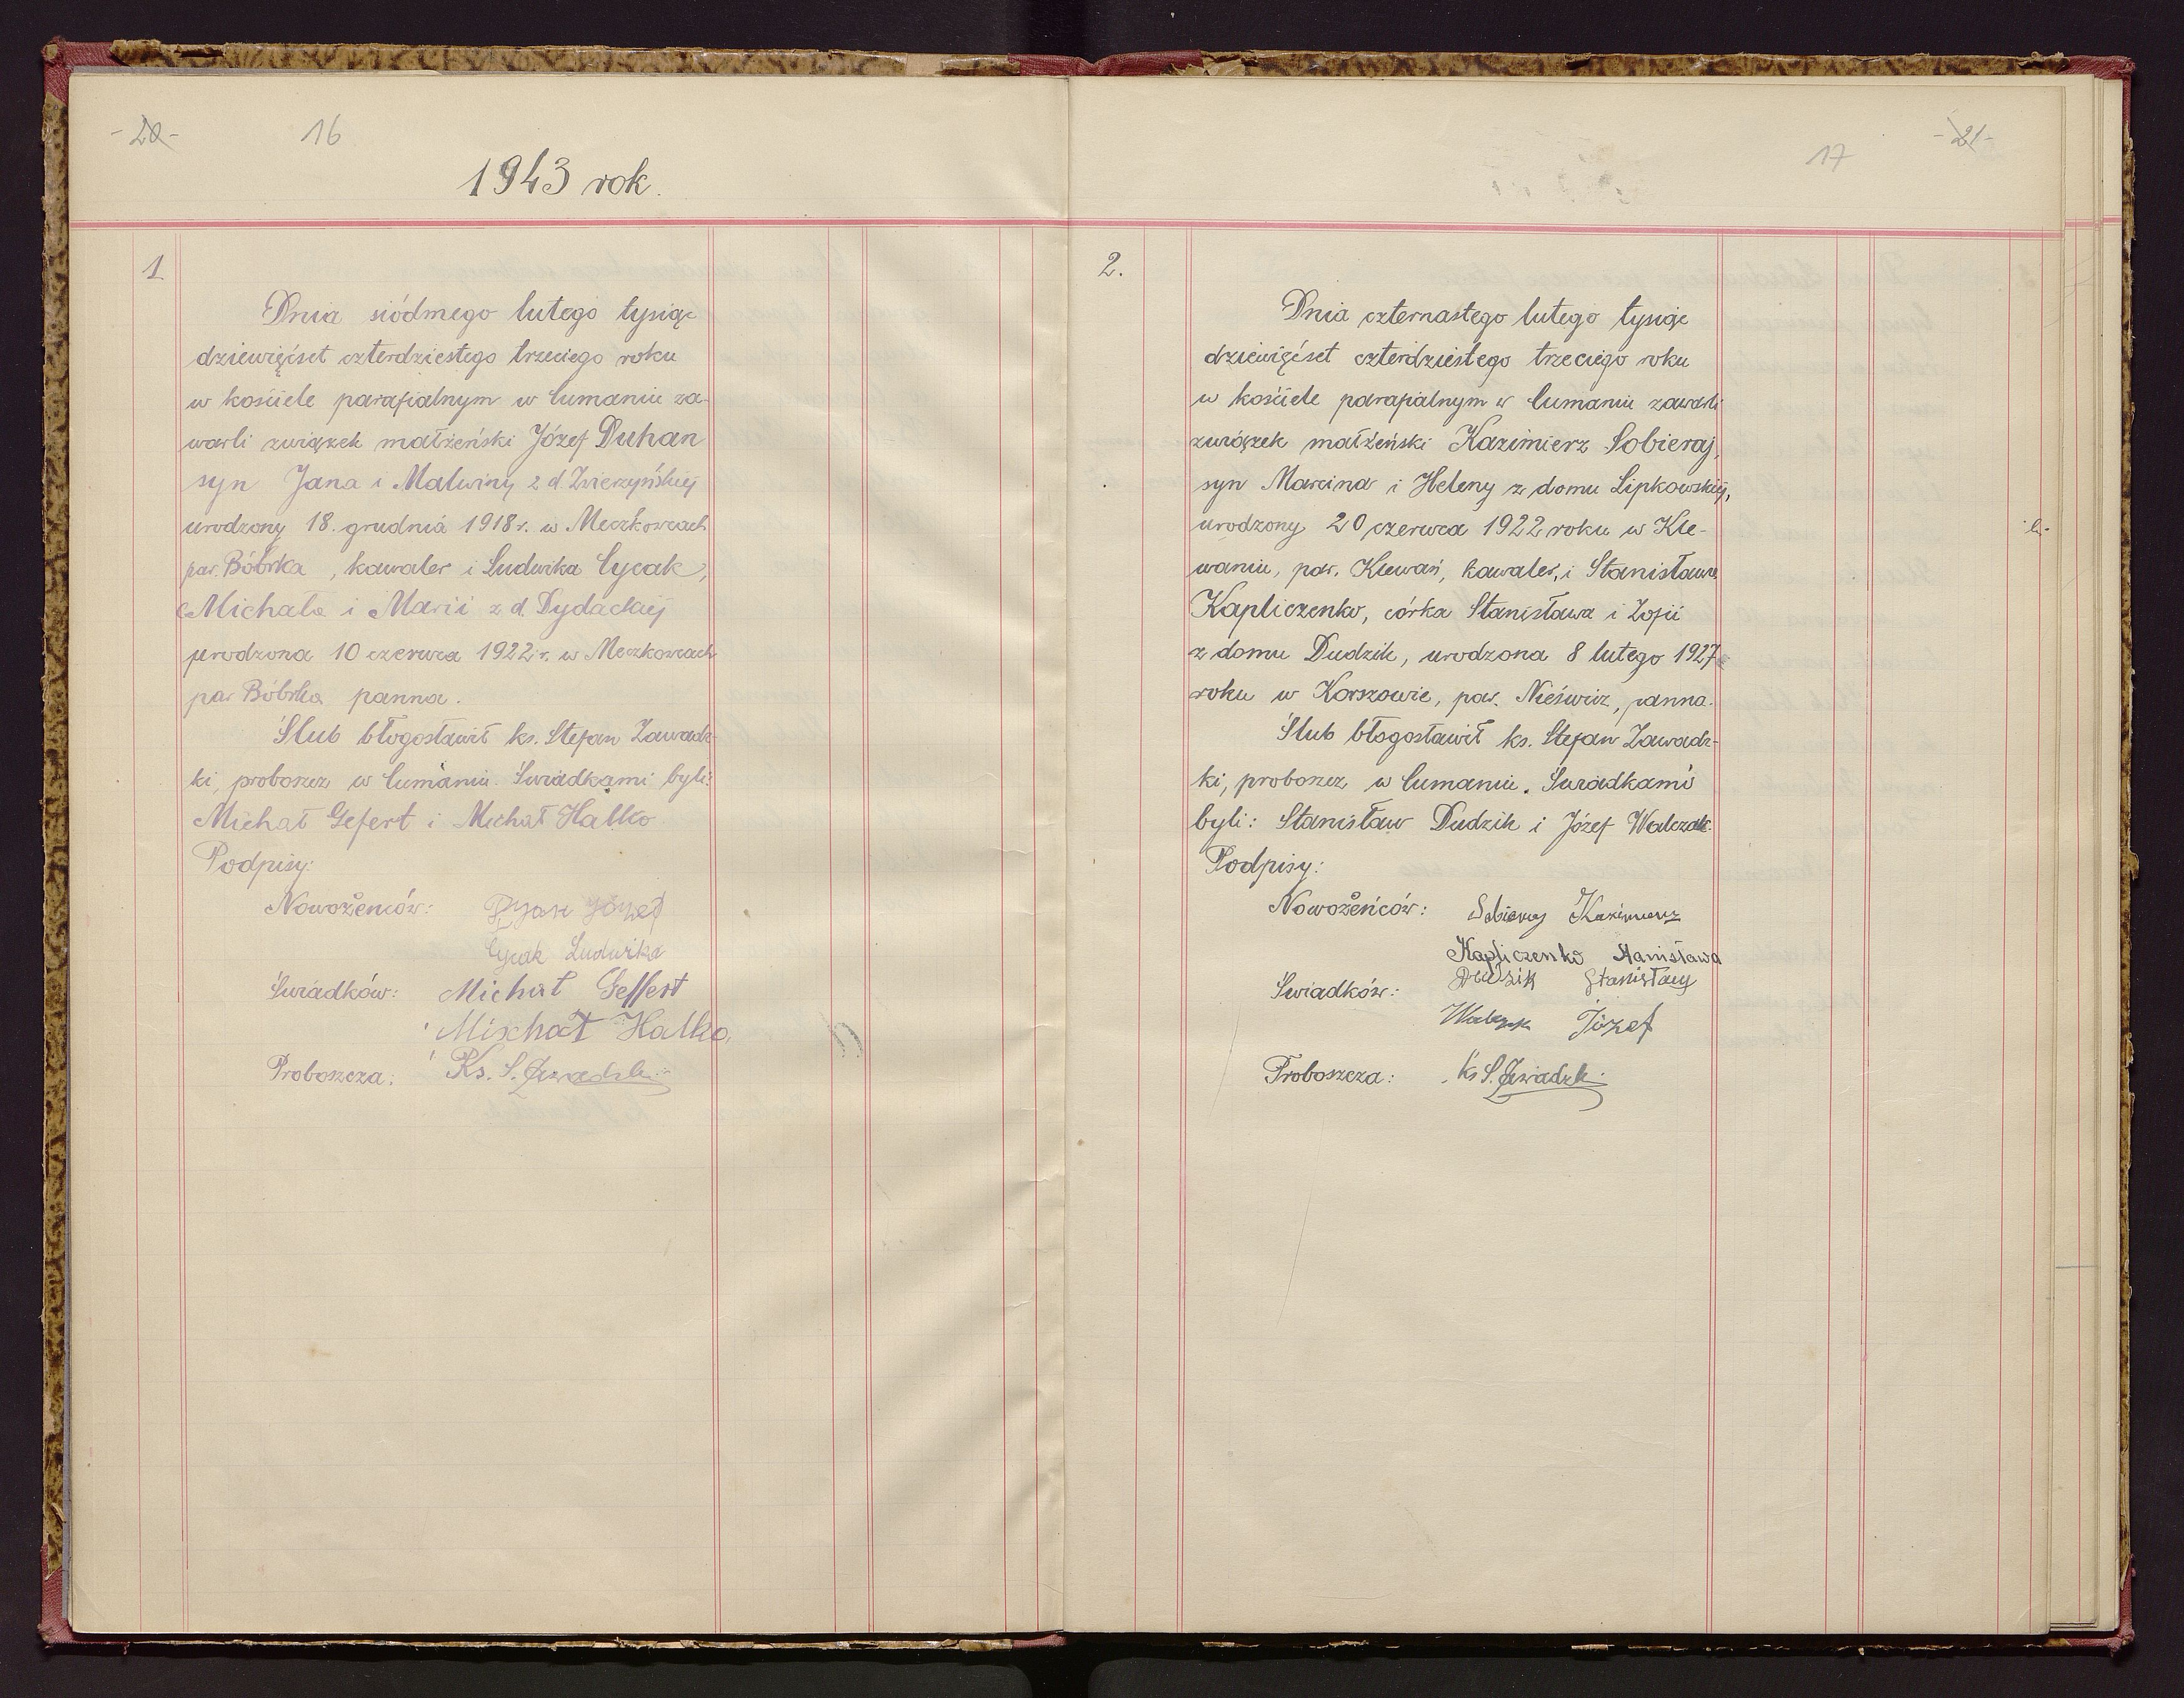 -20-
16
1943 rok.
1
Dnia siódmego lutego tysiąc
dziewięćset czterdziestego trzeciego roku
w kościele parafialnym w Cumaniu za-
warli związek małżeński Józef Duhan
syn Jana i Malwiny z d. Zwierzyńskiej
urodzony 18. grudnia 1918 r. w Meczkowcach
par. Bóbrka, kawaler i Ludwika Cycak,
Michała i Marii z d. Dydackiej
urodzona 10 czerwca 1922 r. w Meczkowcach
par Bóbrka panna.
Ślub błogosławił ks. Stefan Zawadz-
ki, proboszcz w Cumaniu. Świadkami byli:
Michał Gefert i Michał Halko
Podpisy:
Nowożeńców: Józef
Cycak Ludwika
Świadków: Michał Geffert
Mischał Halko,
Proboszcza: Ks. S. Zawadzki
17
-21-
2.
Dnia czternastego lutego tysiąc
dziewięćset czterdziestego trzeciego roku
w kościele parafialnym w Cumaniu zawarli
związek małżeński Kazimierz Sobieraj,
syn Marcina i Heleny z domu Lipkowskiej,
urodzony 20 czerwca 1922 roku w Kle-
waniu, par. Klewań, kawaler, i Stanisława
Kapliczenko, córka Stanisława i Zofii
z domu Dudzik, urodzona 8 lutego 1927
roku w Korszowie, par. Nieśwież, panna.
Ślub błogosławił ks. Stefan Zawadz-
ki, proboszcz w Cumaniu. Świadkami
byli: Stanisław Dudzik i Józef Walczak.
Podpisy:
Nowożeńców: Sobieraj Kazimierz
Kapliczenko Stanisława
Dudzik Stanisław
Świadków:
Walczak Józef
Proboszcza: Ks S. Zawadzki